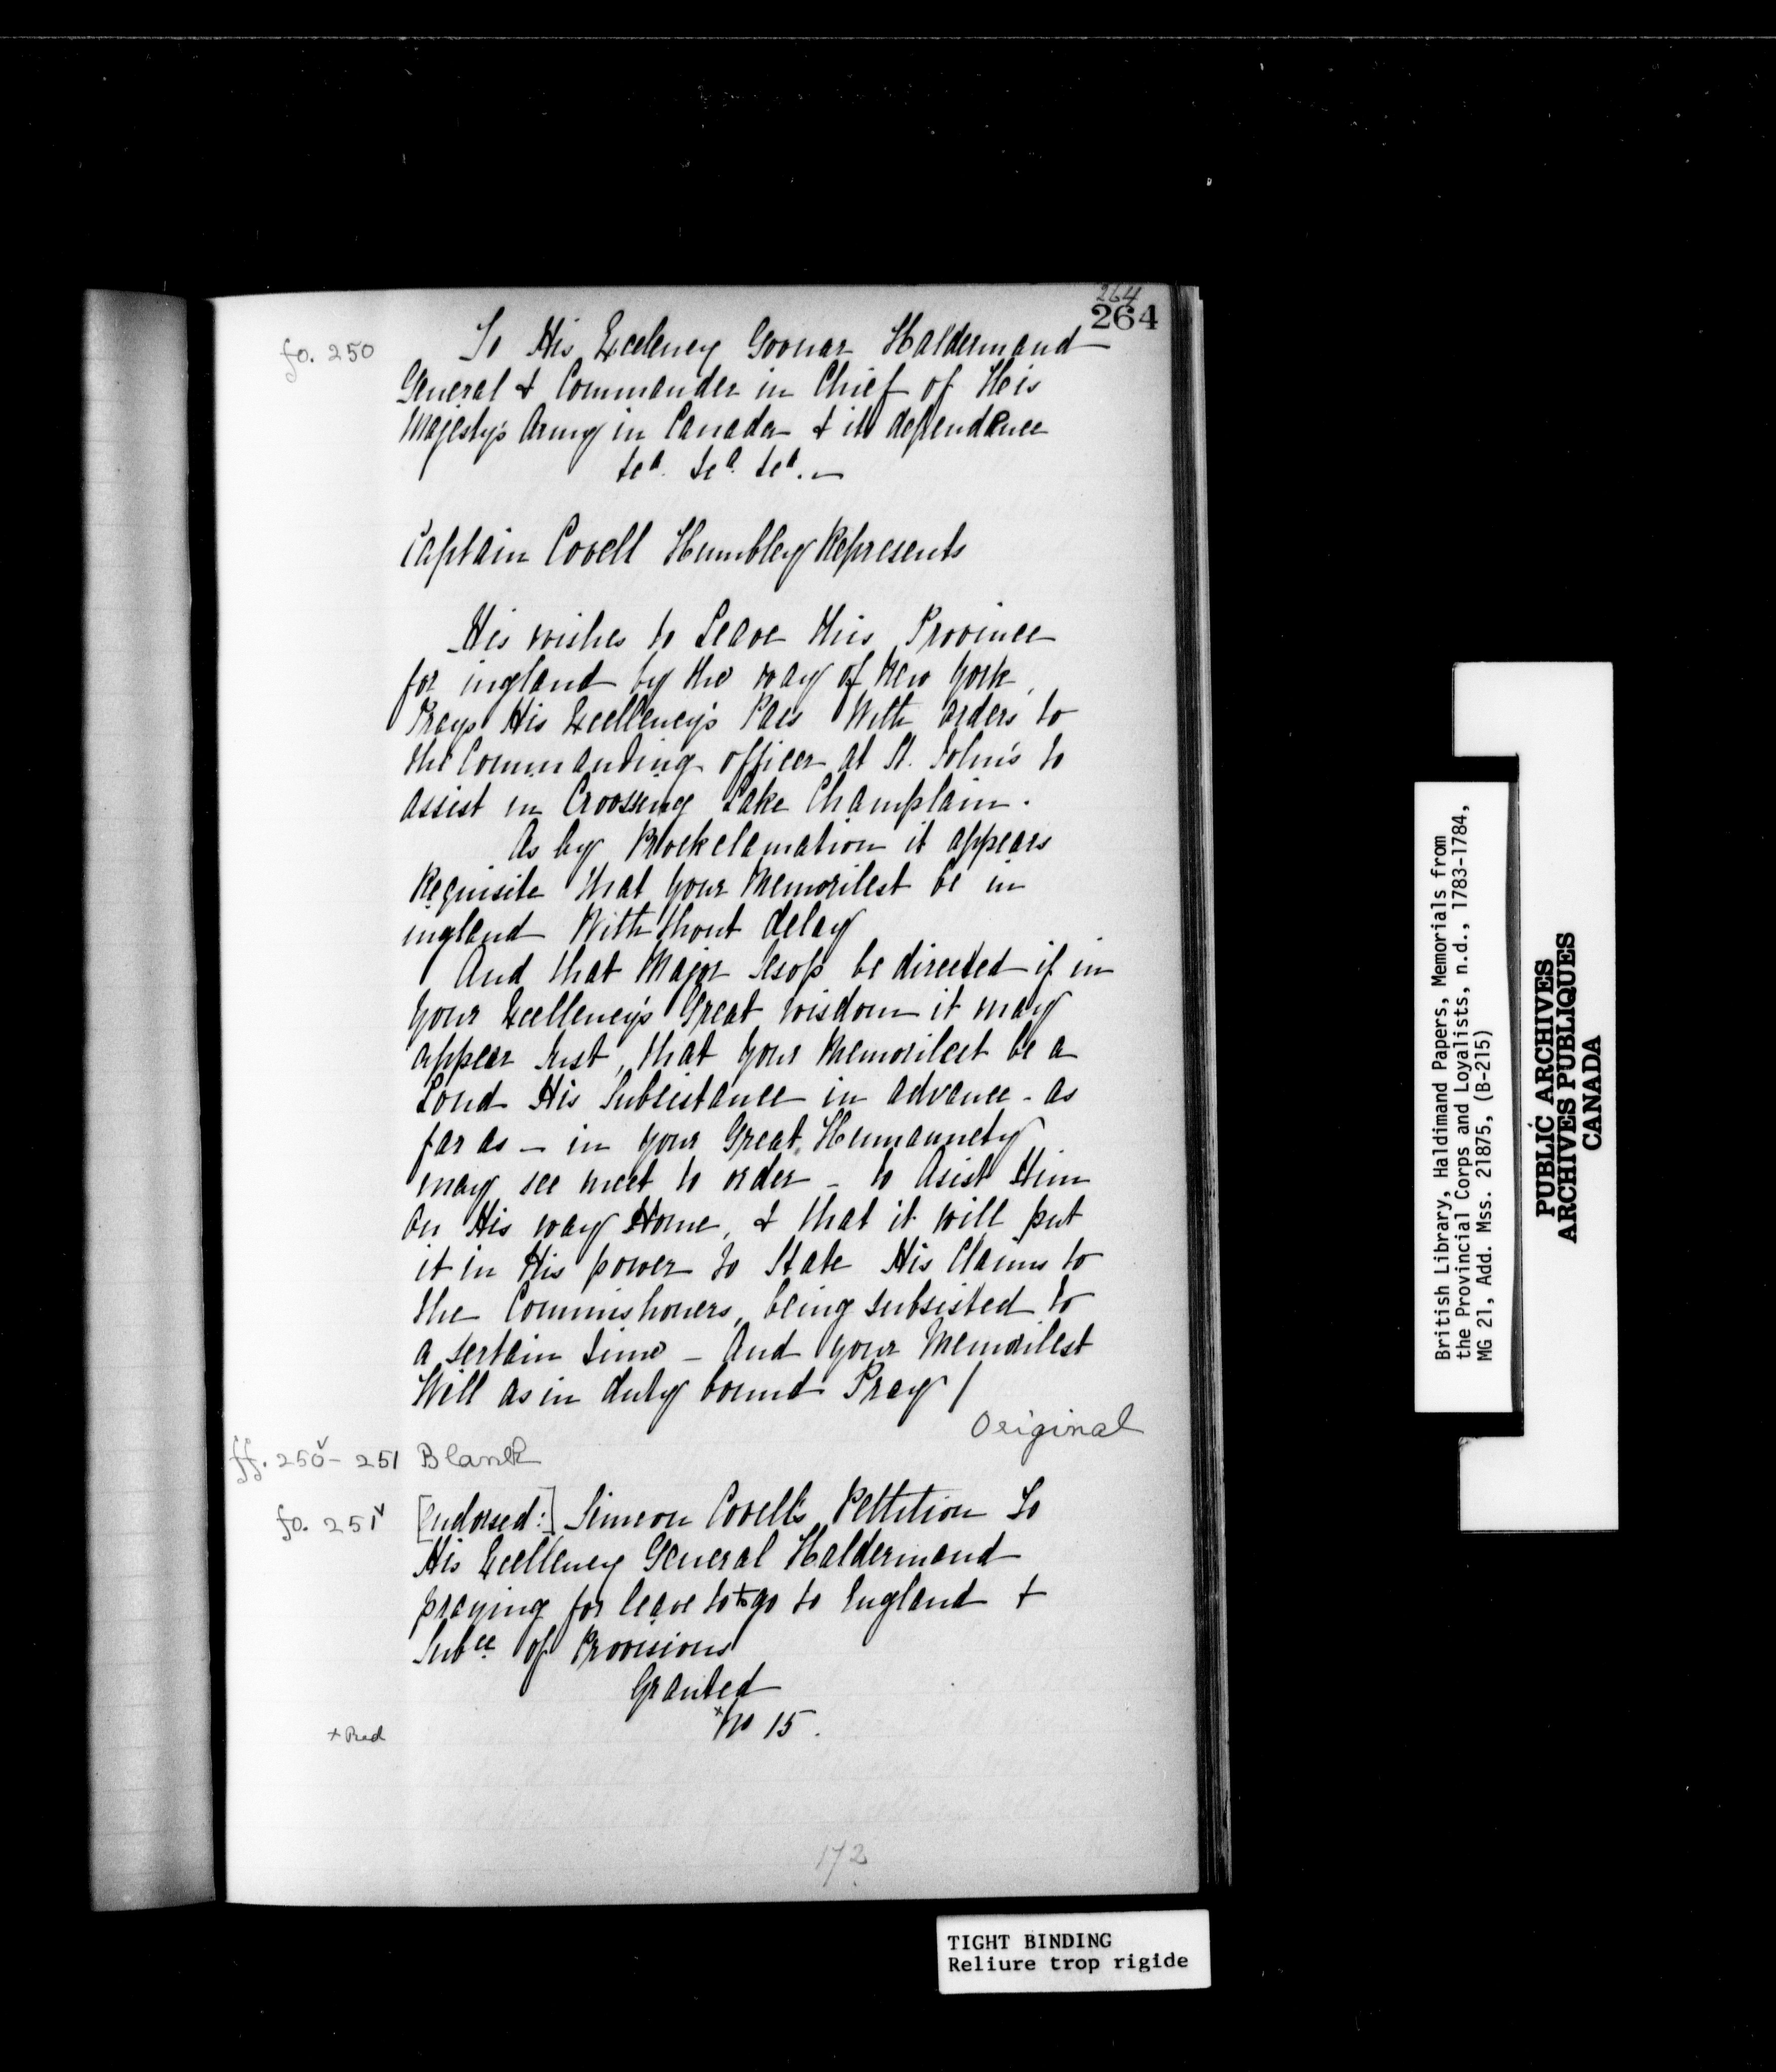 264
264
fo. 250
To His Exceleney Goonar Haldermand
General & Commander in Chief of His
Majesty's Army in Canada & its dependence
&ca. &ca. &ca. —
Captain Covell Humbley Represents
His wishes to Leave this Province
for ingland by the way of New York,
Prays His Excelleney's Pass With orders to
the Commanding officer at St. John's to
assist in Croossing Lake Champlain.
As by Prockclamation it appears
Requisite that your Memorilest be in
ingland With thout delay
And that Major Jesop be directed if in
your Excelleney's Great wisdom it may
appear Just, that your Memorilest be a
Loud His Subsistance in advance - as
far as — in your Great Humannety
may see meet to order — to Asist Him
on His way Home, & that it will put
it in His power to State His Claims to
the Commishoners, being subsisted to
a sertain time — And your Memorilest
Will as in duty bound Pray /
Original
ff. 250v - 251 Blank
fo. 251v [endorsed:] Simeon Covell's Pettition To
His Excelleney General Haldermand
praying for leave to to go to England &
Subce of Provisions
Granted
x No 15.
x Red
172
TIGHT BINDING
Reliure trop rigide
British Library, Haldimand Papers, Memorials from
the Provincial Corps and Loyalists, n.d., 1783-1784,
MG 21, Add. Mss. 21875, (B-215)
PUBLIC ARCHIVES
ARCHIVES PUBLIQUES
CANADA